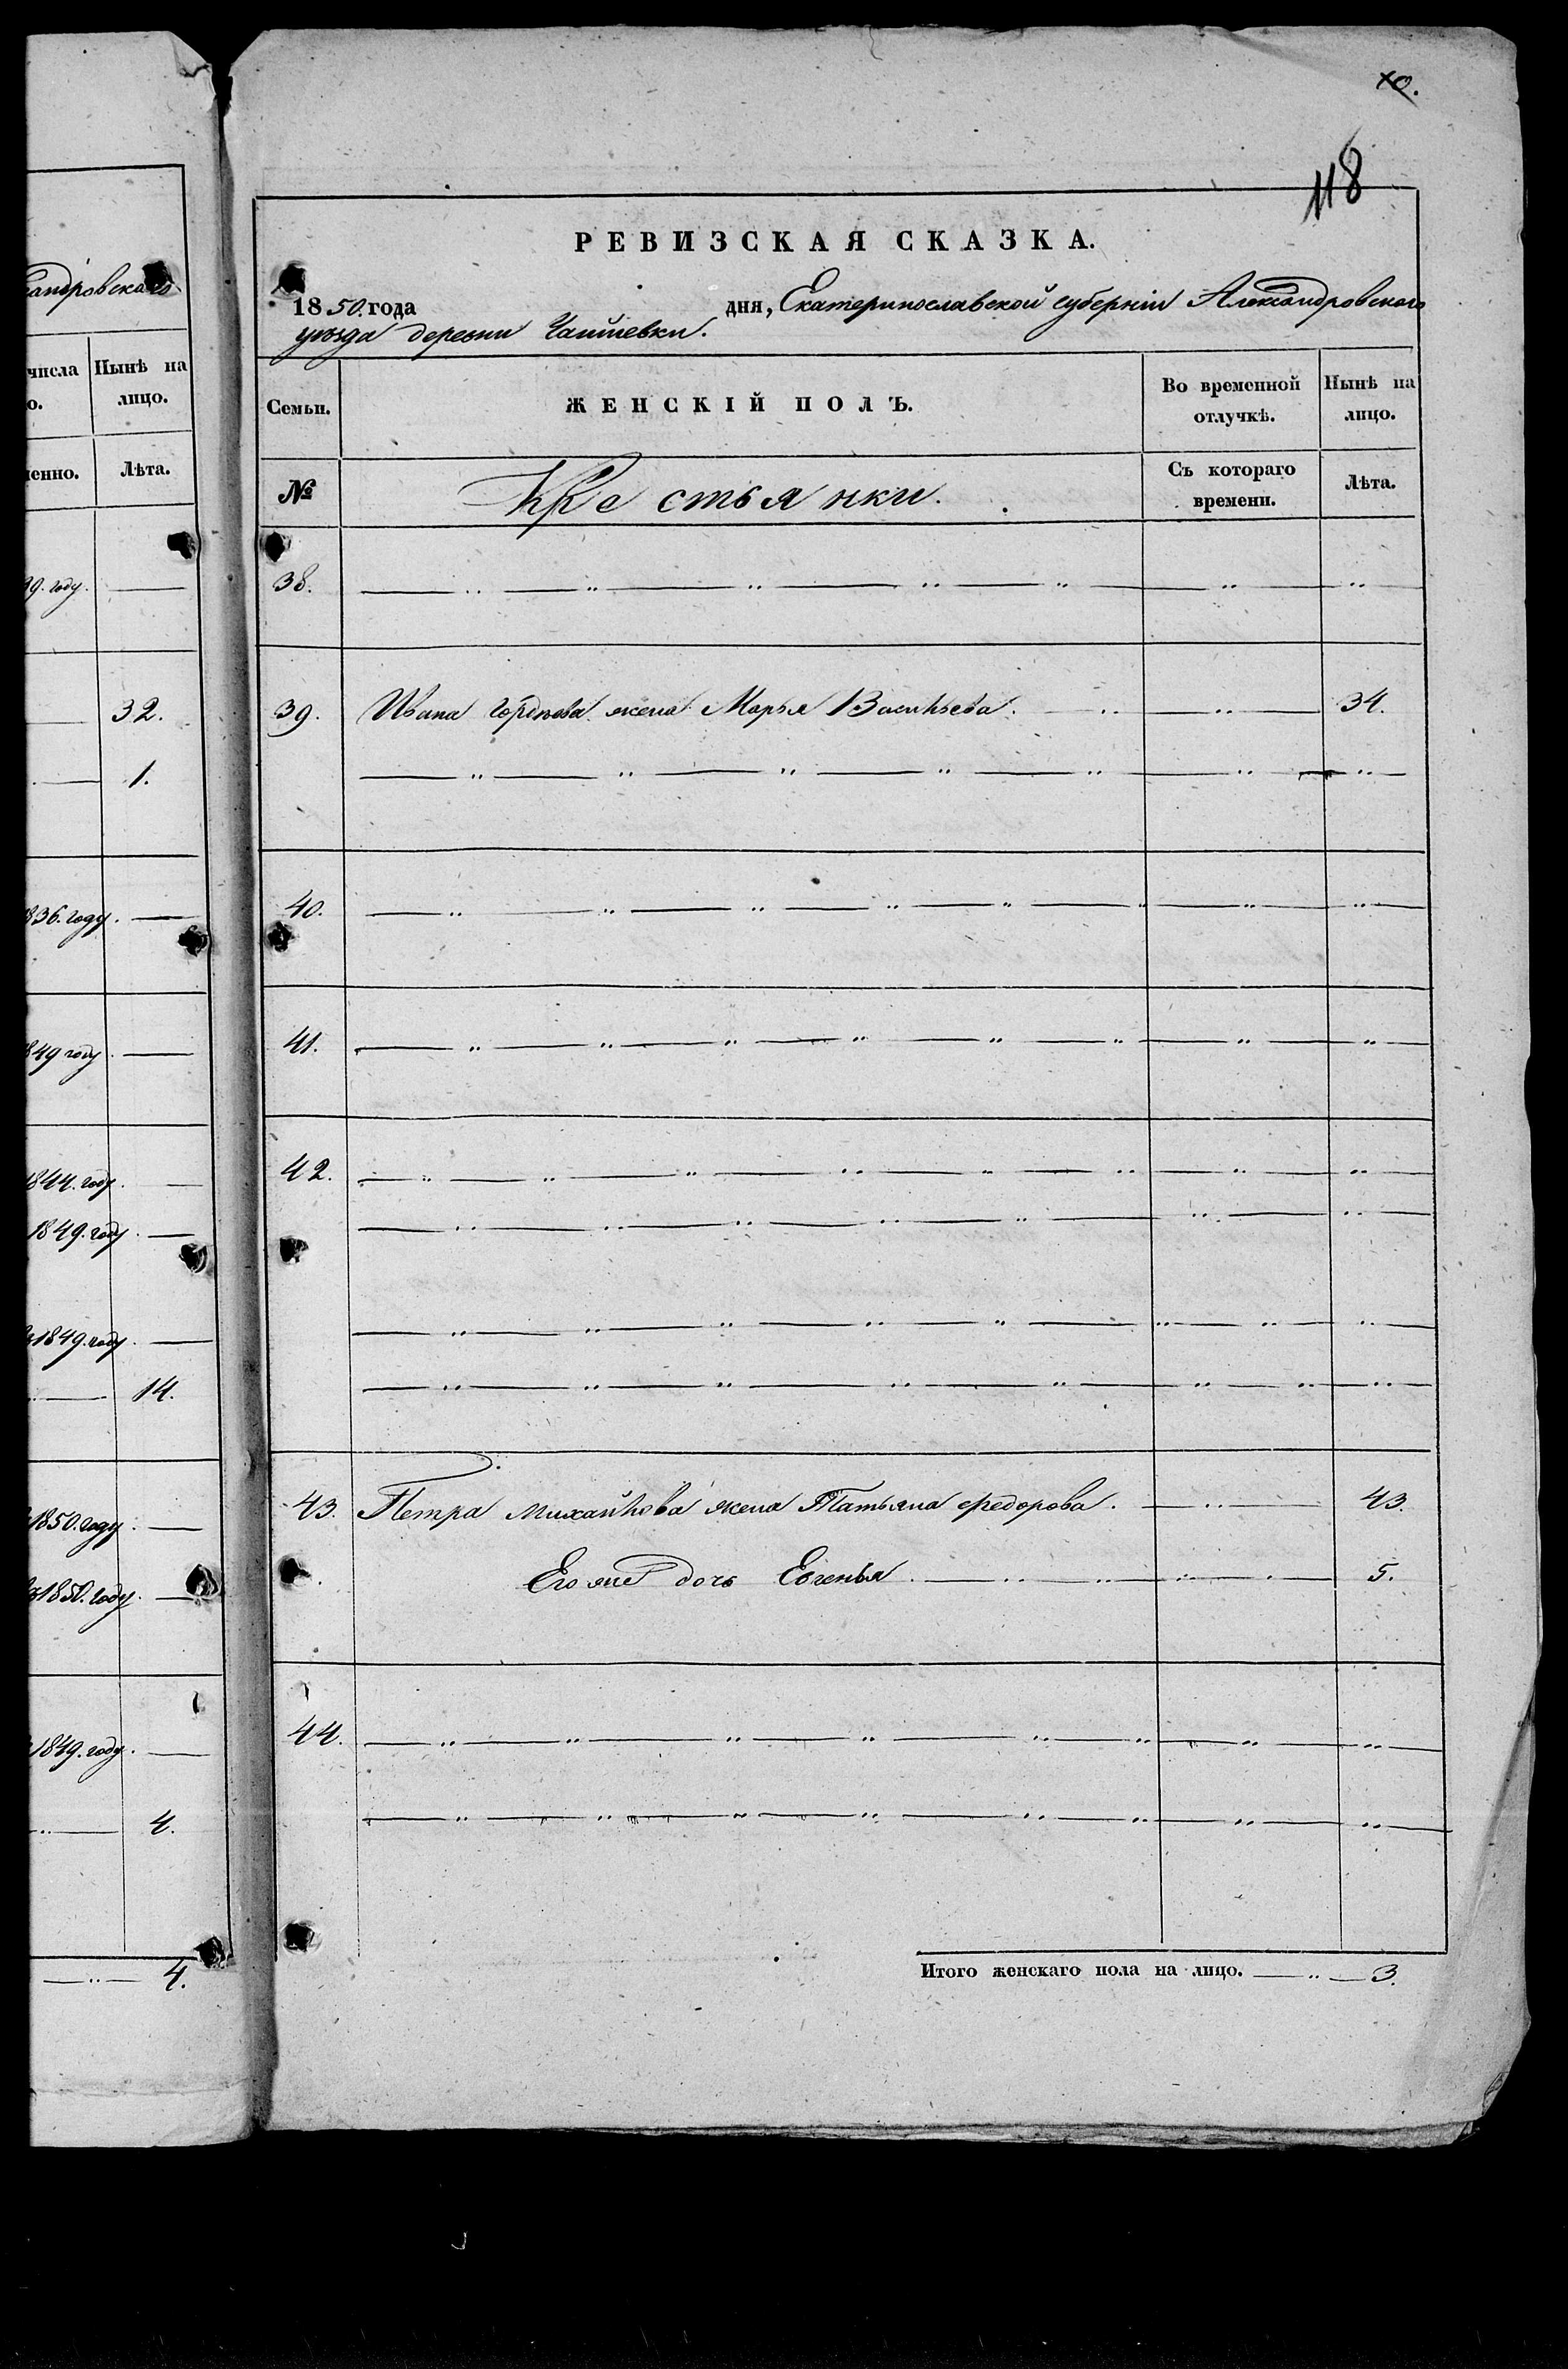 10.
118
РЕВИЗСКАЯ СКАЗКА.
1850. года дня, Екатеринославской губерніи Александровскаго
уѣзда деревни
Семьи. ЖЕНСКІЙ ПОЛЪ. Во временной отлучкѣ. Нынѣ на лицо.
№ Крестьянки. Съ котораго времени. Лѣта.
38. — „ — „ — „ — „ — „ — „ — „
39. Ивана Гордѣева жена Марья Васильева. — „ — „ — 34.
— „ — „ — „ — „ — „ — „ — „
40. — „ — „ — „ — „ — „ — „ — „
41. — „ — „ — „ — „ — „ — „ — „
42. — „ — „ — „ — „ — „ — „ — „
— „ — „ — „ — „ — „ — „ — „
— „ — „ — „ — „ — „ — „ — „
— „ — „ — „ — „ — „ — „ — „
43. Петра Михайлова жена Татьяна Федорова. — „ — 43.
Его же дочь Евгенья. — „ — „ — „ — 5.
44. — „ — „ — „ — „ — „ — „ — „
— „ — „ — „ — „ — „ — „ — „
Итого женскаго пола на лицо. — „ — 3.
андровскаго
числа Нынѣ на
о. лицо.
енно. Лѣта.
39. году. —
— 32.
— 1.
1836. году. —
1849 году. —
1844. году. —
1849. году. —
1849. году. —
— 14.
1850. году. —
1850. году. —
1849. году. —
— 4.
— „ — 4.